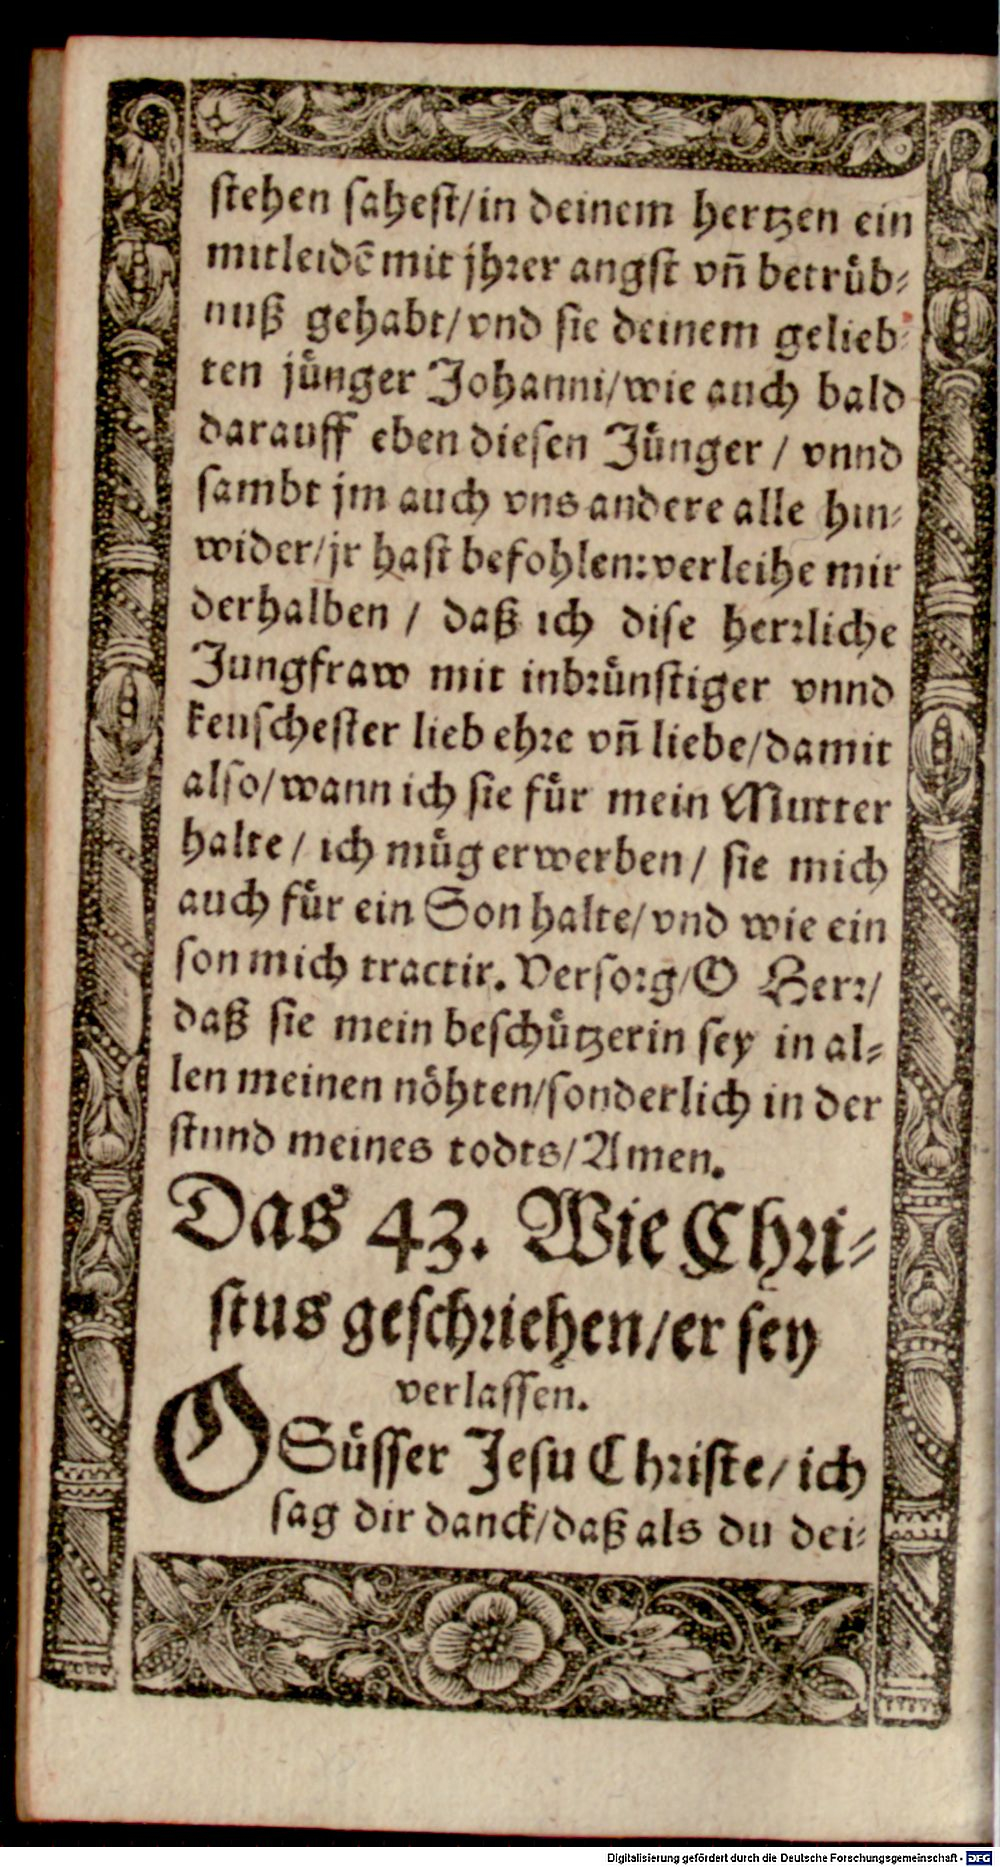 stehen sahest/in deinem hertzen ein
mitleidẽ mit jhrer angst vn̄ betrůb⸗
nuß gehabt/vnd sie deinem gelieb⸗
ten jůnger Johanni/wie auch bald
darauff eben diesen Jůnger / vnnd
sambt jm auch vns andere alle hin⸗
wider/jr hast befohlen: verleihe mir
derhalben / daß ich dise herrliche
Jungfraw mit inbrůnstiger vnnd
keuschester lieb ehre vn̄ liebe/damit
also/wann ich sie fůr mein Mutter
halte/ ich můg erwerben/ sie mich
auch fůr ein Son halte/vnd wie ein
son mich tractir. Versorg/O Herr/
daß sie mein beschůtzerin sey in al⸗
len meinen nöhten/sonderlich in der
stund meines todts/Amen.
Das 43. Wie Chri⸗
stus geschriehen/er sey
verlassen.
O Sůsser Jesu Christe/ich
sag dir danck/daß als du dei⸗
Digitalisierung gefördert durch die Deutsche Forschungsgemeinschaft - DFG